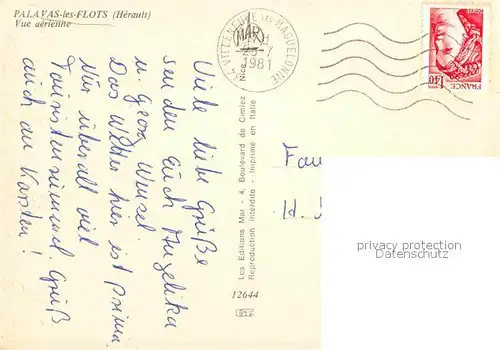 PALAVAS-les-FLOTS (Hérault)
Vue aérienne
34 VILLENEUVE LES MAGUELONNE
25-7
1981
FRANCE
1,40
POSTES
Viele liebe Grüße
senden Euch Angelika
u. Georg Wenzel.
Das Wetter hier ist prima
Nur überall viel
Touristenrummel. Gruß
auch an Karsten!
Les Editions Mar - 4, Boulevard de Cimiez Nice
Reproduction interdite - Imprimé en Italie
MAR
12644
Fam
H.
privacy protection
Datenschutz